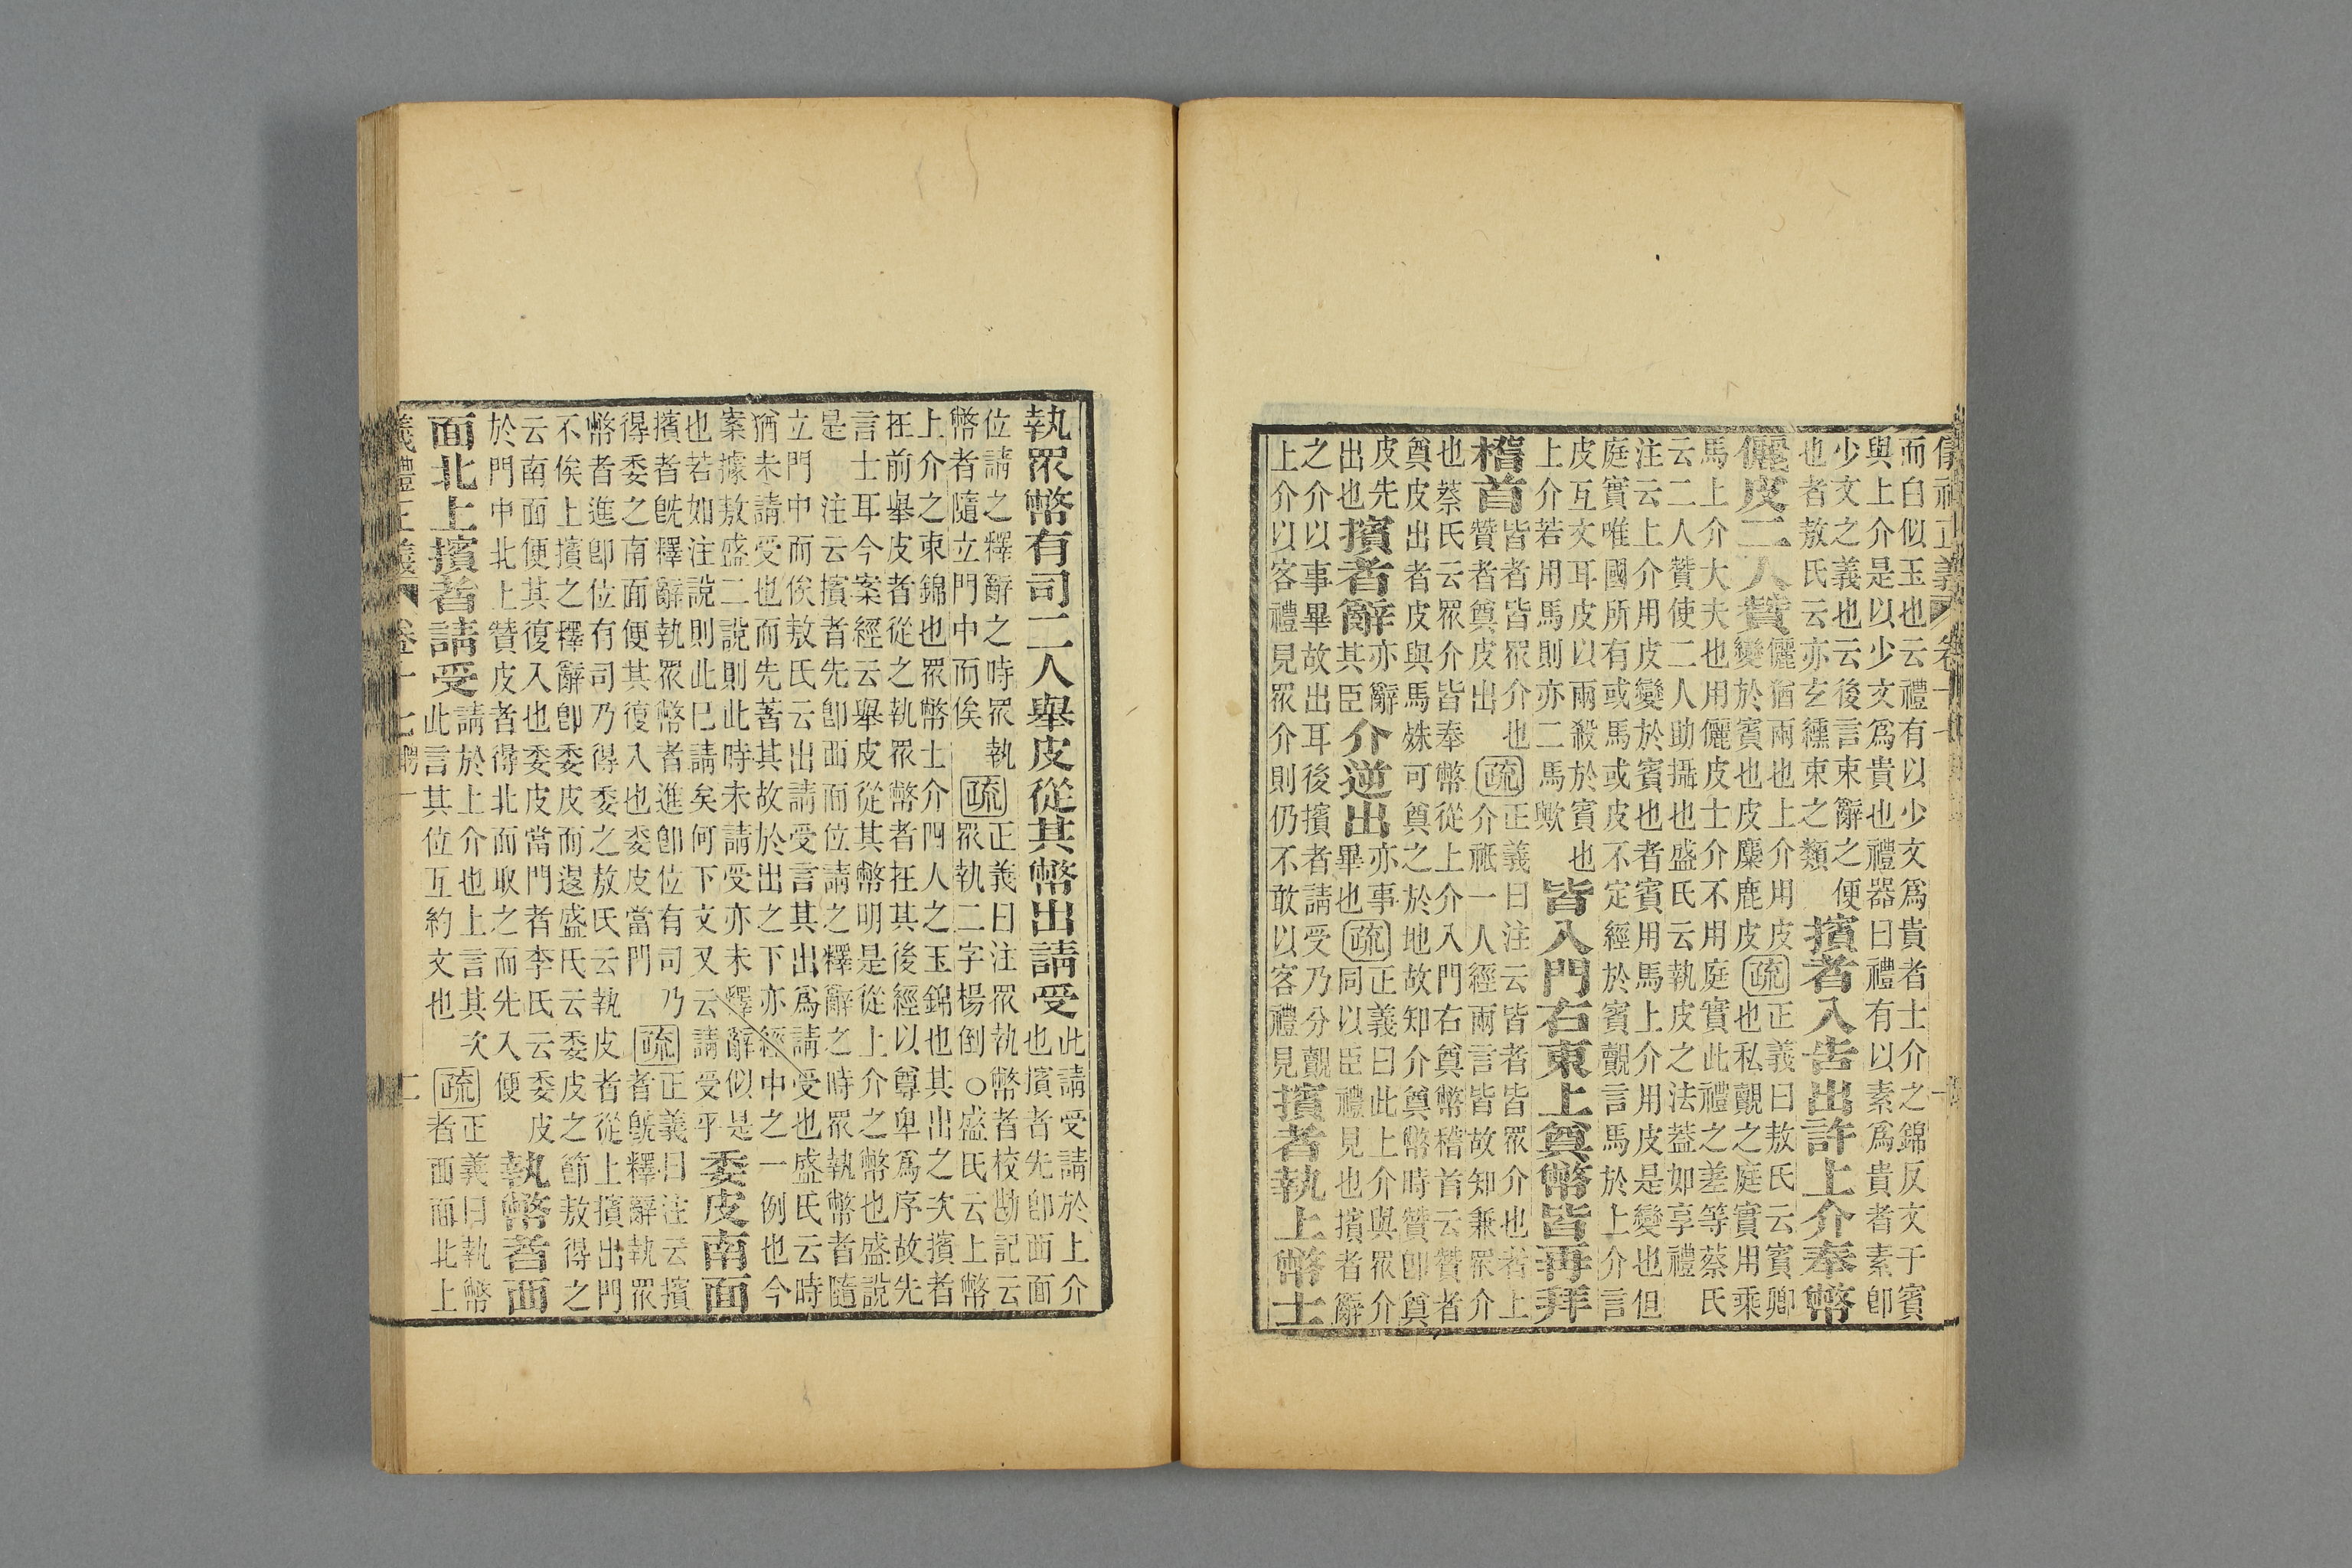 而白似玉也云禮有以少文爲貴者士介之錦反文于賓
與上介是以少文爲貴也禮器曰禮有以素爲貴者素卽
少文之義也云後言束辭之便
也者敖氏云亦玄纁束之類
擯者入告出許上介奉幣
儷皮二人贊
儷猶兩也上介用皮
變於賓也皮麋鹿皮
疏
正義曰敖氏云賓卿
也私覿之庭實用乘
馬上介大夫也用儷皮士介不用庭實此禮之差等蔡氏
云二人贊使二人助攝也盛氏云執皮之法蓋如享禮
注云上介用皮變於賓也者賓用馬上介用皮是變也但
庭實唯國所有或馬或皮不定經於賓覿言馬於上介言
皮互文耳皮以兩殺於賓也
上介若用馬則亦二馬歟
皆入門右東上奠幣皆再拜
稽首
皆者皆眾介也
贊者奠皮出
疏
正義曰注云皆者皆眾介也者上
介祗一人經兩言皆故知兼眾介
也蔡氏云眾介皆奉幣從上介入門右奠幣稽首云贊者
奠皮出者皮與馬姝可奠之於地故知介奠幣時贊卽奠
皮先
出也
擯者辭
亦辭
其臣
介逆出
亦事
畢也
疏
正義曰此上介與眾介
同以臣禮見也擯者辭
之介以事畢故出耳後擯者請受乃分覿
上介以客禮見眾介則仍不敢以客禮見
擯者執上幣士
執眾幣有司二人舉皮從其幣出請受
此請受請於上介
也擯者先卽西面
位請之釋辭之時眾執
幣者隨立門中而俟
疏
正義曰注眾執幣者校勘記云
眾執二字楊倒○盛氏云上幣
上介之束錦也眾幣士介四人之玉錦也其出之次擯者
在前舉皮者從之執眾幣者在其後經以尊卑爲序故先
言士耳今案經云舉皮從其幣明是從上介之幣也盛說
是 注云擯者先卽西面位請之釋辭之時眾執幣者隨
立門中而俟敖氏云出請受言其出爲請受也盛氏云時
猶未請受也而先著其故於出之下亦經中之一例也今
案據敖盛二說則此時未請受亦未釋辭似是
也若如注說則此巳請矣何下文又云請受乎
委皮南面
擯者旣釋辭執眾幣者進卽位有司乃
得委之南面便其復入也委皮當門
疏
正義曰注云擯
者旣釋辭執眾
幣者進卽位有司乃得委之敖氏云執皮者從上擯出門
不俟上擯之釋辭卽委皮而退盛氏云委皮之節敖得之
云南面便其復入也委皮當門者李氏云委皮
於門中北上贊皮者得北面而取之而先入便
執幣者西
面北上擯者請受
請於上介也上言其次
此言其位互約文也
疏
正義曰執幣
者西面北上